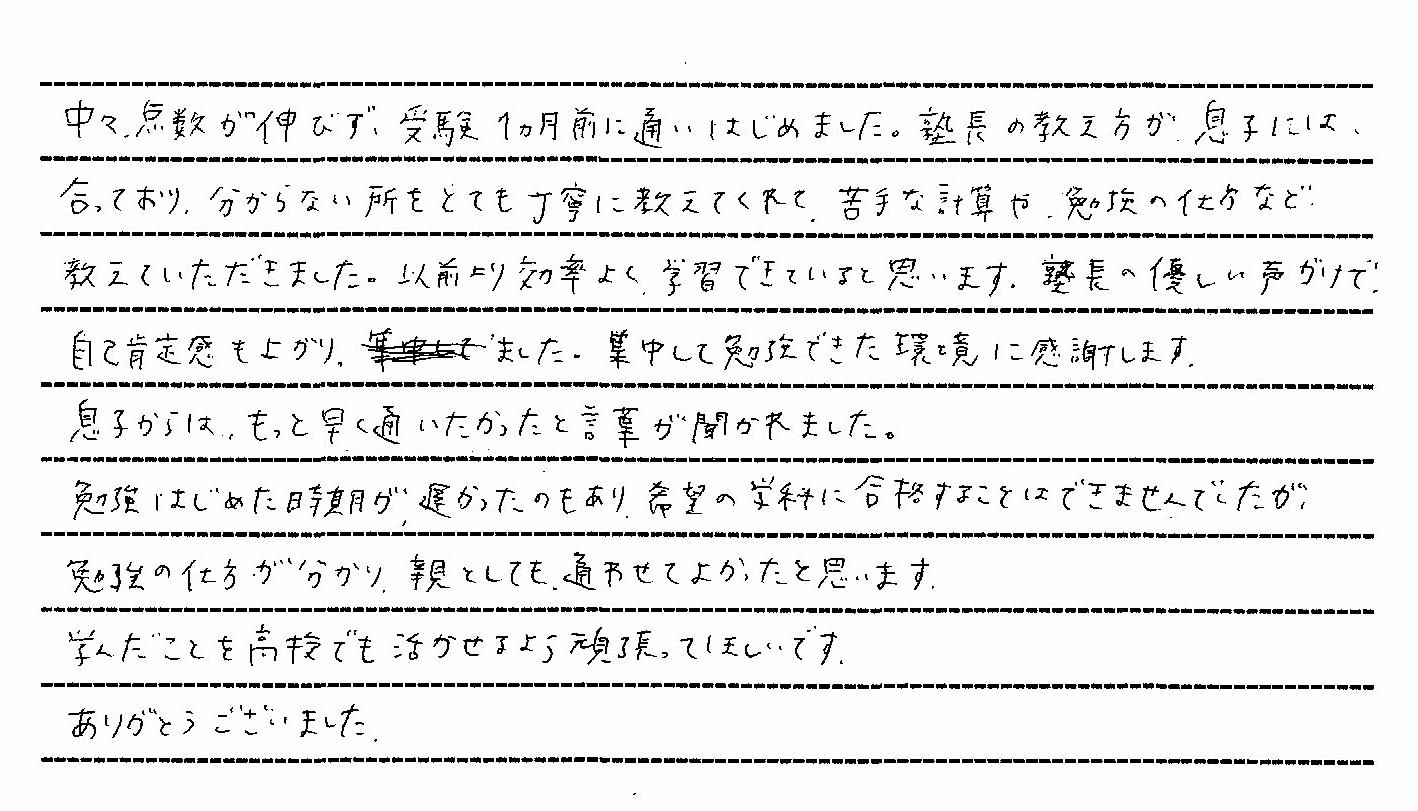 中々、点数が伸びず、受験1カ月前に通いはじめました。塾長の教え方が、息子には、
合っており、分からない所をとても丁寧に教えてくれて、苦手な計算や、勉強の仕方など
教えていただきました。以前より効率よく、学習できていると思います。塾長の優しい声がけで、
自己肯定感も上がり、ました。集中して勉強できた環境に感謝します。
息子からは、もっと早く通いたかったと言葉が聞かれました。
勉強はじめた時期が、遅かったのもあり、希望の学科に合格することはできませんでしたが、
勉強の仕方が分かり、親としても、通わせてよかったと思います。
学んだことを高校でも活かせるよう頑張ってほしいです。
ありがとうございました。